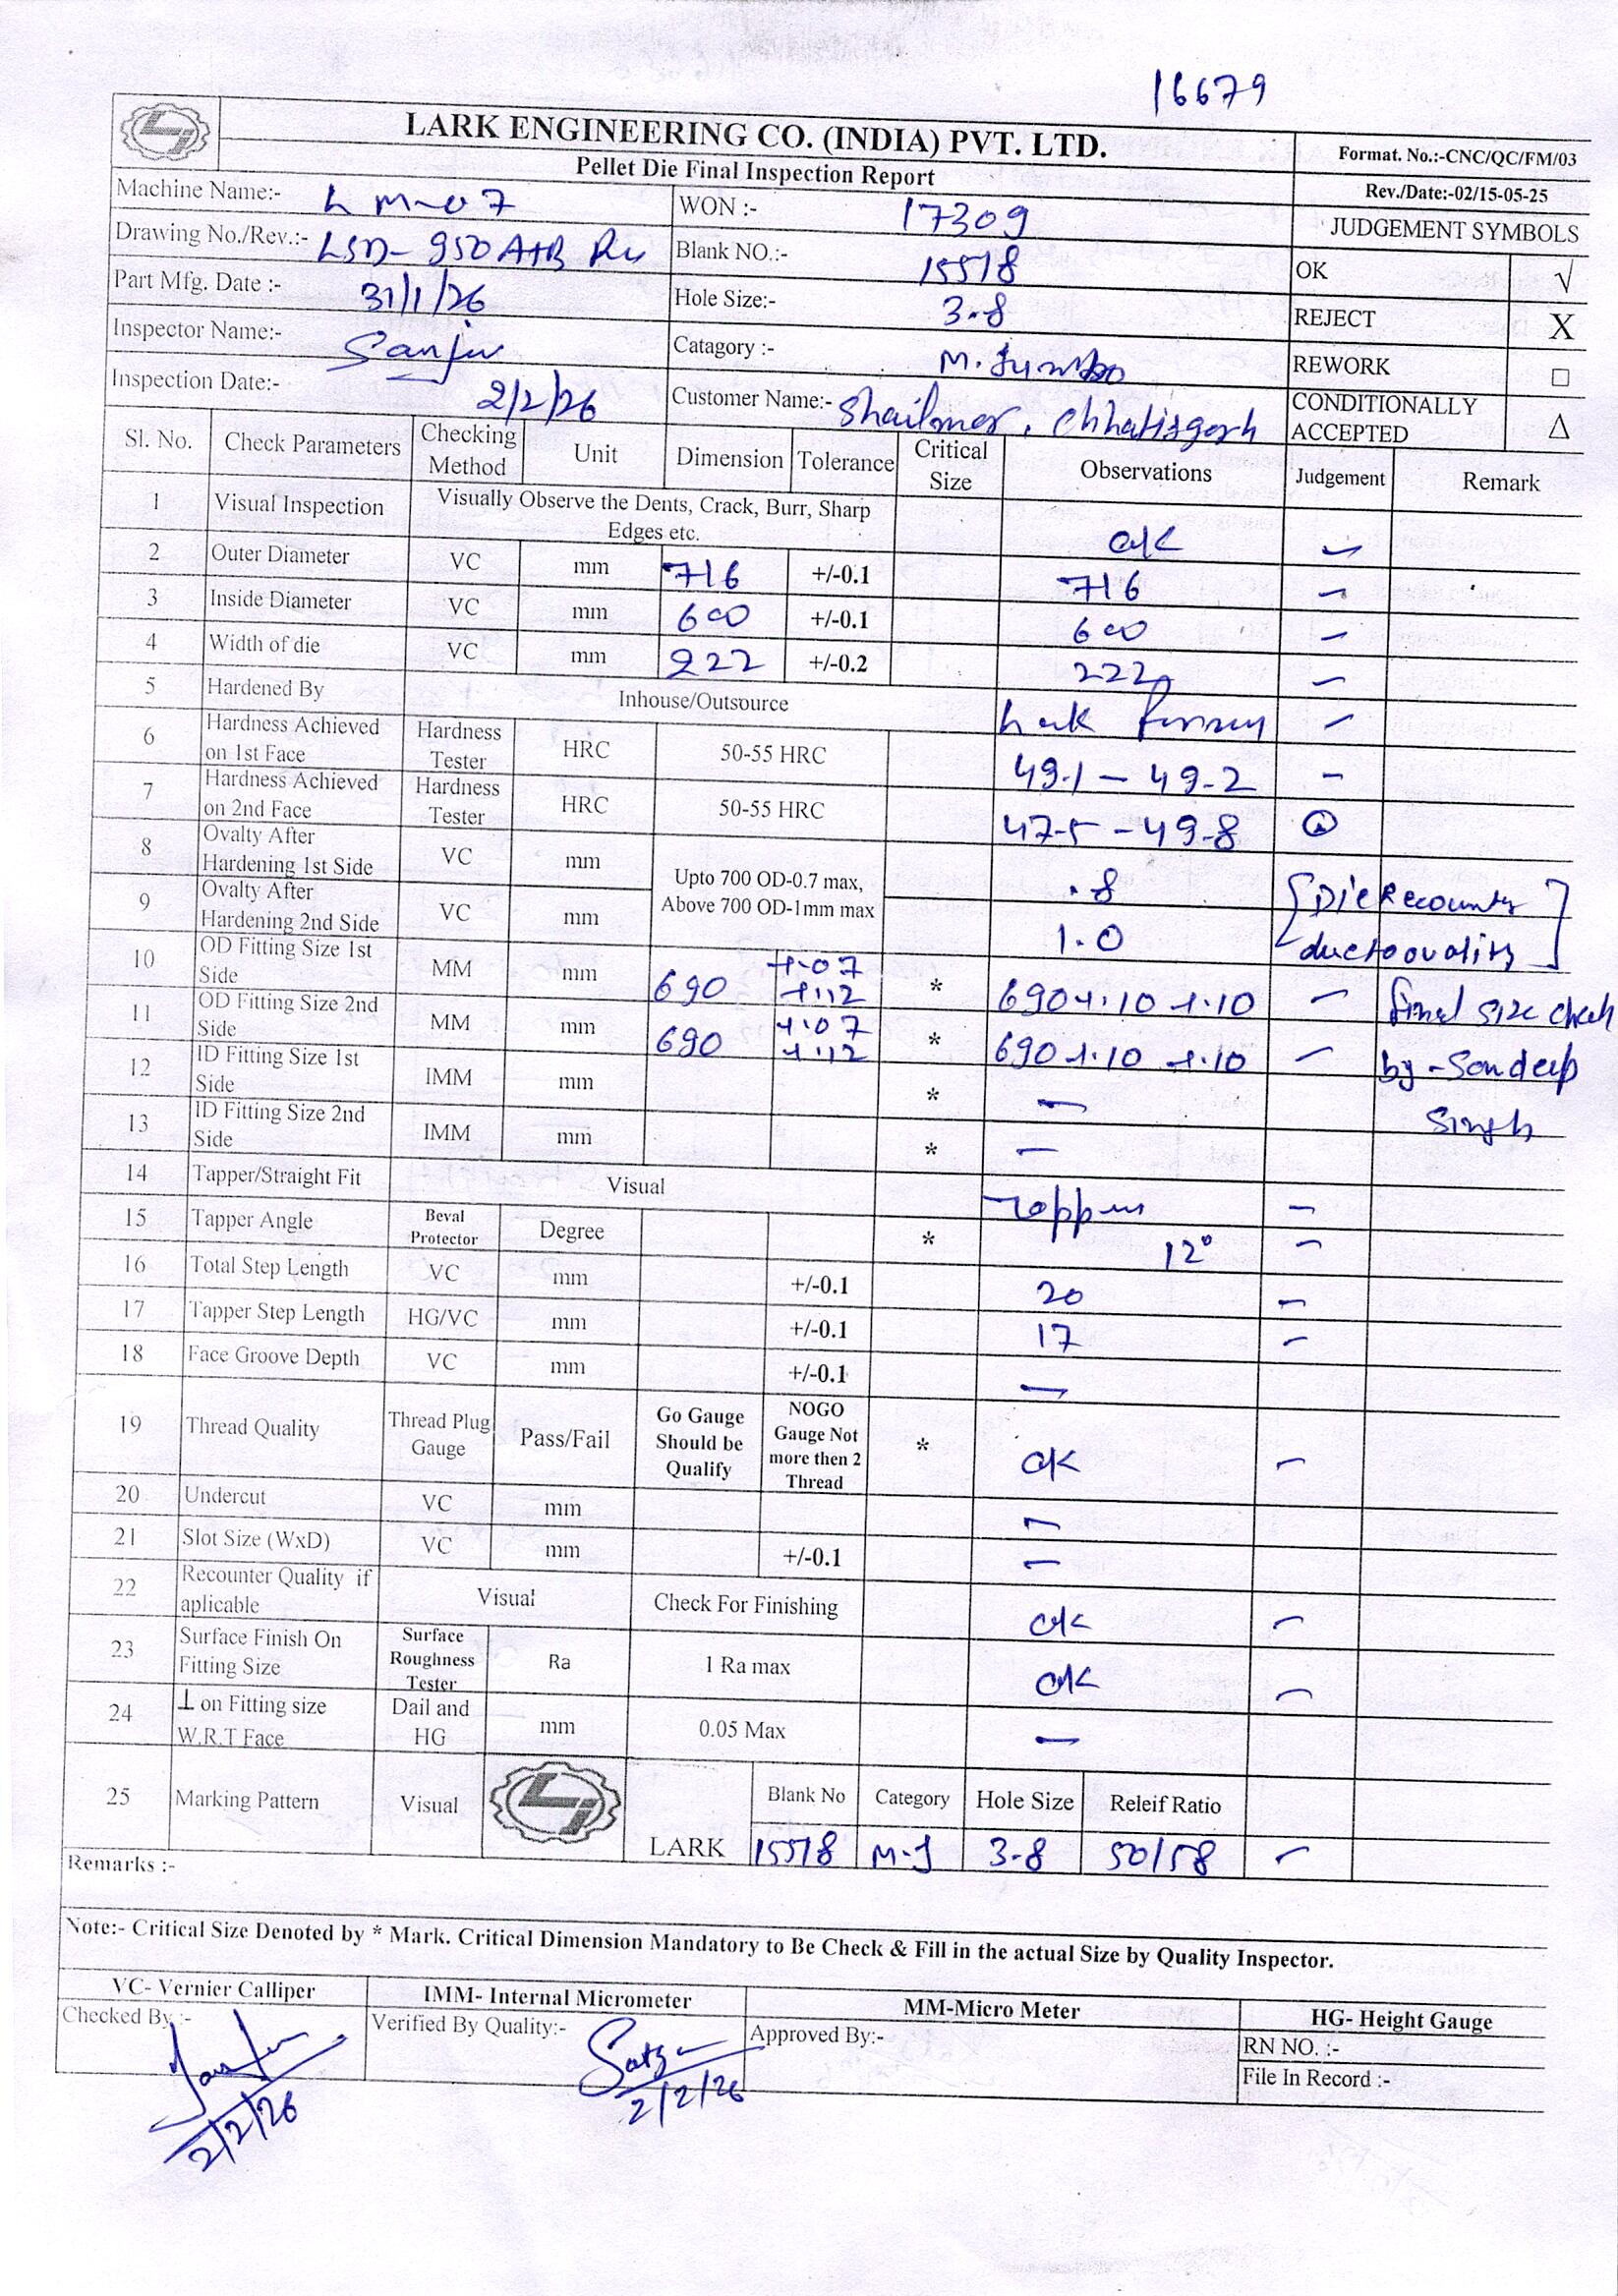 16679
LARK ENGINEERING CO. (INDIA) PVT. LTD.
Pellet Die Final Inspection Report
Format. No.:-CNC/QC/FM/03
Rev./Date:-02/15-05-25
Machine Name:- LM-07 WON :- 17309 JUDGEMENT SYMBOLS
Drawing No./Rev.:- LSD-950 A+B Blank NO.:- 15518 OK √
Part Mfg. Date :- 31/1/26 Hole Size:- 3.8 REJECT X
Inspector Name:- Sanjiv Catagory :- M. Jumbo REWORK □
Inspection Date:- 2/2/26 Customer Name:- Shailmar, Chhatisgarh CONDITIONALLY ACCEPTED △
Sl. No. Check Parameters Checking Method Unit Dimension Tolerance Critical Size Observations Judgement Remark
1 Visual Inspection Visually Observe the Dents, Crack, Burr, Sharp Edges etc. ok
2 Outer Diameter VC mm 716 +/-0.1 716
3 Inside Diameter VC mm 600 +/-0.1 600
4 Width of die VC mm 222 +/-0.2 222
5 Hardened By Inhouse/Outsource Lark
6 Hardness Achieved on 1st Face Hardness Tester HRC 50-55 HRC 49.1 - 49.2
7 Hardness Achieved on 2nd Face Hardness Tester HRC 50-55 HRC 47.5 - 49.8
8 Ovalty After Hardening 1st Side VC mm Upto 700 OD-0.7 max, Above 700 OD-1mm max .8 Die Recounter
9 Ovalty After Hardening 2nd Side VC mm 1.0 due to ovality
10 OD Fitting Size 1st Side MM mm 690 +.07 +.12 * 690 +.10 +.10 - final size check
11 OD Fitting Size 2nd Side MM mm 690 +.07 +.12 * 690 +.10 +.10 - by - Sandeep
12 ID Fitting Size 1st Side IMM mm * - Singh
13 ID Fitting Size 2nd Side IMM mm * -
14 Tapper/Straight Fit Visual Tapper -
15 Tapper Angle Beval Protector Degree * 12° -
16 Total Step Length VC mm +/-0.1 20 -
17 Tapper Step Length HG/VC mm +/-0.1 17 -
18 Face Groove Depth VC mm +/-0.1 -
19 Thread Quality Thread Plug Gauge Pass/Fail Go Gauge Should be Qualify NOGO Gauge Not more then 2 Thread * ok -
20 Undercut VC mm -
21 Slot Size (WxD) VC mm +/-0.1 -
22 Recounter Quality if aplicable Visual Check For Finishing ok -
23 Surface Finish On Fitting Size Surface Roughness Tester Ra 1 Ra max ok -
24 ⊥ on Fitting size W.R.T Face Dail and HG mm 0.05 Max -
25 Marking Pattern Visual LARK Blank No Category Hole Size Releif Ratio
15518 M-J 3-8 50/58 -
Remarks :-
Note:- Critical Size Denoted by * Mark. Critical Dimension Mandatory to Be Check & Fill in the actual Size by Quality Inspector.
VC- Vernier Calliper IMM- Internal Micrometer MM-Micro Meter HG- Height Gauge
Checked By :- Verified By Quality:- Approved By:- RN NO. :-
File In Record :-
2/2/26 2/2/26